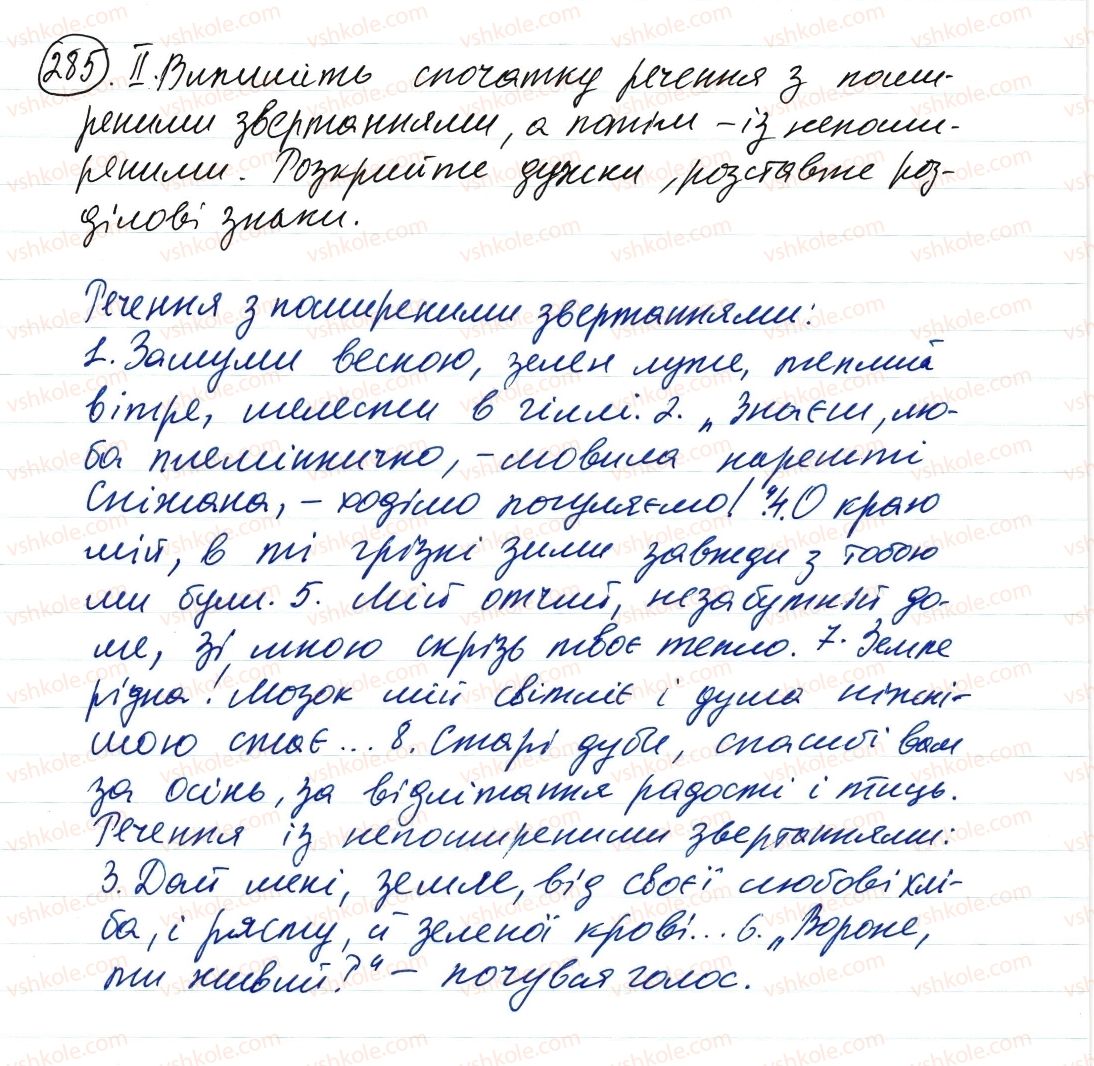 285. II. Випишіть спочатку речення з поши-
реними звертаннями, а потім – із непоши-
реними. Розкрийте дужки, розставте роз-
ділові знаки.
Речення з поширеними звертаннями:
1. Зашуми весною, зелен луже, теплий
вітре, шелести в гіллі. 2. „Знаєш, лю-
ба племінничко, – мовила нарешті
Сніжана, – ходімо погуляємо!" 4. О краю
мій, в ті грізні зими завжди з тобою
ми були. 5. Мій отчий, незабутній до-
ме, зі мною скрізь твоє тепло. 7. Земле
рідна! Мозок мій світліє і душа ніжні-
шою стає... 8. Старі дуби, спасибі вам
за осінь, за відлітання радості і птиць.
Речення із непоширеними звертаннями:
3. Дай мені, земле, від своєї любові хлі-
ба, і рясту, й зеленої крові... 6. „Вороне,
ти живий?" – почувся голос.